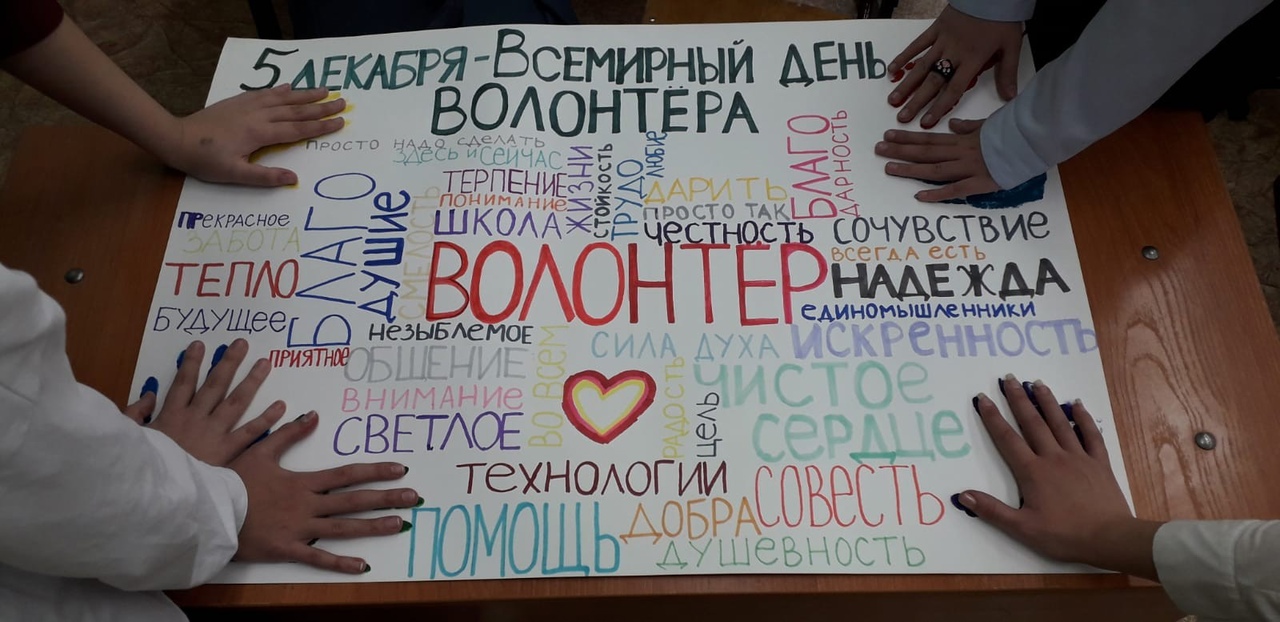 5 ДЕКАБРЯ-ВСЕМИРНЫЙ ДЕНЬ
ВОЛОНТЁРА
ПРОСТО НАДО СДЕЛАТЬ
ЗДЕСЬ И СЕЙЧАС
ТЕРПЕНИЕ
ПОНИМАНИЕ
ШКОЛА
ЖИЗНИ
СТОЙКОСТЬ
ТРУДО
ЛЮБИЕ
ДАРИТЬ
ПРОСТО ТАК
ЧЕСТНОСТЬ
БЛАГО
ДАРНОСТЬ
СОЧУВСТВИЕ
ПРЕКРАСНОЕ
ЗАБОТА
ТЕПЛО
БУДУЩЕЕ
БЛАГО
ДУШИЕ
СМЕЛОСТЬ
ВОЛОНТЁР
ВСЕГДА ЕСТЬ
НАДЕЖДА
ЕДИНОМЫШЛЕННИКИ
НЕЗЫБЛЕМОЕ
ПРИЯТНОЕ
ОБЩЕНИЕ
ВНИМАНИЕ
СВЕТЛОЕ
ВО ВСЕМ
СИЛА ДУХА
ИСКРЕННОСТЬ
РАДОСТЬ
ЦЕЛЬ
ЧИСТОЕ
СЕРДЦЕ
ТЕХНОЛОГИИ
ДОБРА
СОВЕСТЬ
ПОМОЩЬ
ДУШЕВНОСТЬ